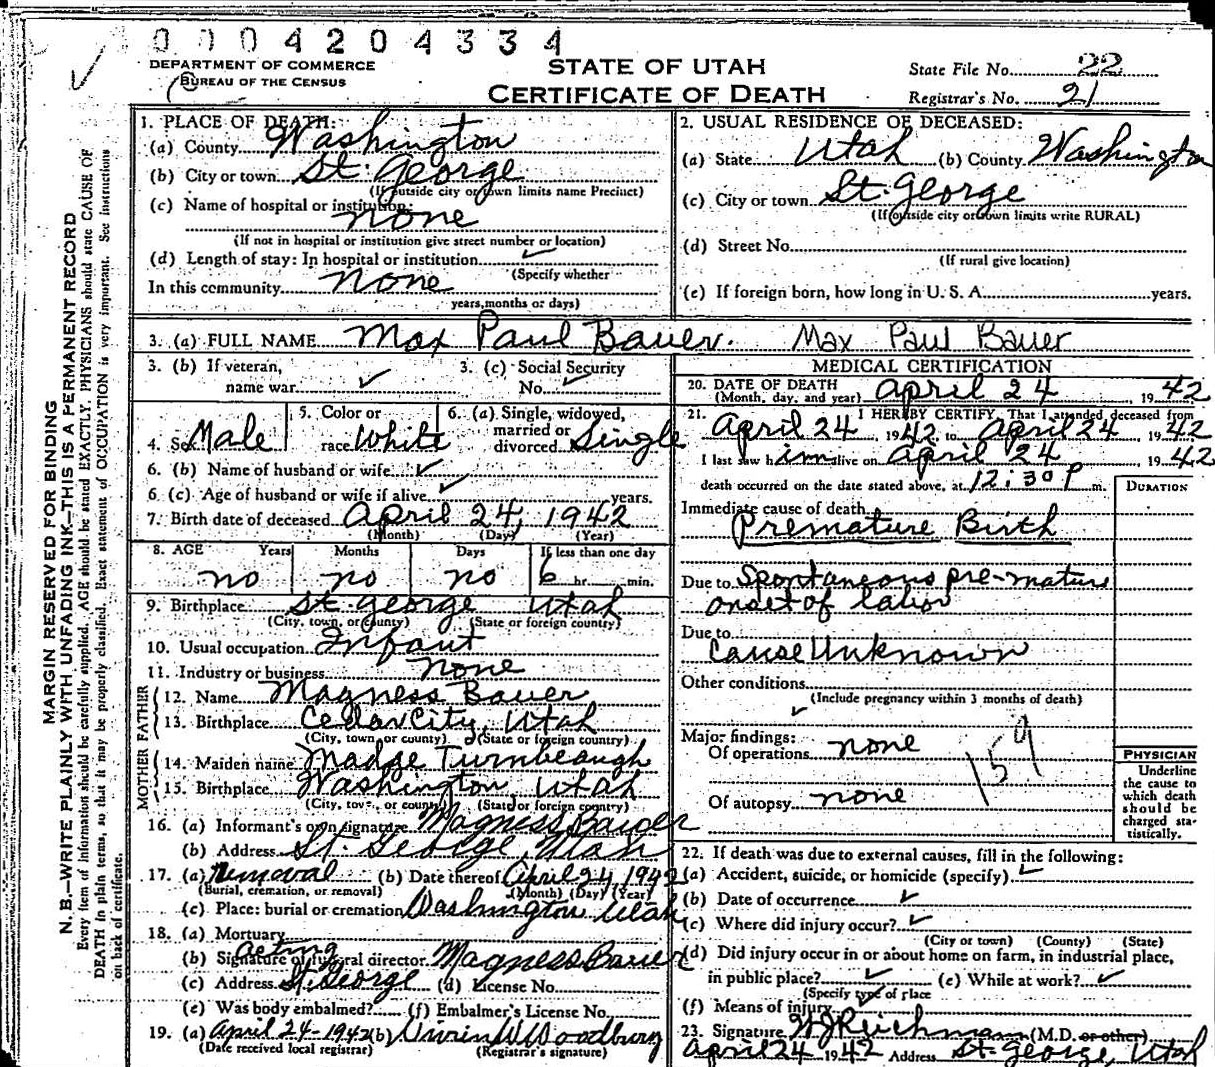 0004204334
DEPARTMENT OF COMMERCE
BUREAU OF THE CENSUS
STATE OF UTAH
CERTIFICATE OF DEATH
State File No. 22
Registrar's No. 21
MARGIN RESERVED FOR BINDING
N. B.—WRITE PLAINLY WITH UNFADING INK—THIS IS A PERMANENT RECORD
Every item of information should be carefully supplied. AGE should be stated EXACTLY. PHYSICIANS should state CAUSE OF
DEATH in plain terms, so that it may be properly classified. Exact statement of OCCUPATION is very important. See instructions
on back of certificate.
1. PLACE OF DEATH:
(a) County Washington
(b) City or town St. George
(If outside city or town limits name Precinct)
(c) Name of hospital or institution:
none
(If not in hospital or institution give street number or location)
(d) Length of stay: In hospital or institution ✓
(Specify whether
In this community none
years, months or days)
2. USUAL RESIDENCE OF DECEASED:
(a) State Utah (b) County Washington
(c) City or town St. George
(If outside city or town limits write RURAL)
(d) Street No.
(If rural give location)
(e) If foreign born, how long in U. S. A. years.
3. (a) FULL NAME Max Paul Bauer. Max Paul Bauer
3. (b) If veteran,
name war ✓
3. (c) Social Security
No. ✓
4. Sex Male
5. Color or
race White
6. (a) Single, widowed,
married or
divorced Single
6. (b) Name of husband or wife ✓
6. (c) Age of husband or wife if alive ✓ years.
7. Birth date of deceased April 24, 1942
(Month) (Day) (Year)
8. AGE Years Months Days If less than one day
no no no 6 hr. min.
9. Birthplace St. George Utah
(City, town, or county) (State or foreign country)
10. Usual occupation Infant
11. Industry or business none
FATHER
12. Name Magness Bauer
13. Birthplace Cedar City, Utah
(City, town or county) (State or foreign country)
MOTHER
14. Maiden name Madge Turnbeaugh
15. Birthplace Washington, Utah
(City, town, or county) (State or foreign country)
16. (a) Informant's own signature Magness Bauer
(b) Address St. George, Utah
17. (a) Removal (b) Date thereof April 24, 1942
(Burial, cremation, or removal) (Month) (Day) (Year)
(c) Place: burial or cremation Washington Utah
18. (a) Mortuary
acting
(b) Signature of funeral director Magness Bauer
(c) Address St. George (d) License No.
(e) Was body embalmed? (f) Embalmer's License No.
19. (a) April 24-1942 (b) Woodbury
(Date received local registrar) (Registrar's signature)
MEDICAL CERTIFICATION
20. DATE OF DEATH
(Month, day, and year) April 24, 1942
21. I HEREBY CERTIFY, That I attended deceased from
April 24, 1942, to April 24, 1942
I last saw him alive on April 24, 1942
death occurred on the date stated above, at 12:30 P m.
DURATION
Immediate cause of death
Premature Birth
Due to Spontaneous pre-mature
onset of labor
Due to
Cause Unknown
Other conditions
(Include pregnancy within 3 months of death)
✓
Major findings:
Of operations none
159
Of autopsy none
PHYSICIAN
Underline
the cause to
which death
should be
charged sta-
tistically.
22. If death was due to external causes, fill in the following:
(a) Accident, suicide, or homicide (specify) ✓
(b) Date of occurrence ✓
(c) Where did injury occur? ✓
(City or town) (County) (State)
(d) Did injury occur in or about home on farm, in industrial place,
in public place? ✓ (e) While at work? ✓
(Specify type of place
(f) Means of injury ✓
23. Signature W J Reichmann (M.D. or other)
April 24 1942 Address St. George, Utah